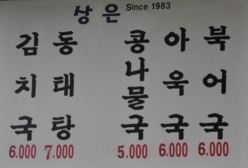 상은 Since 1983
김치국
6.000
동태탕
7.000
콩나물국
5.000
아욱국
6.000
북어국
6.000